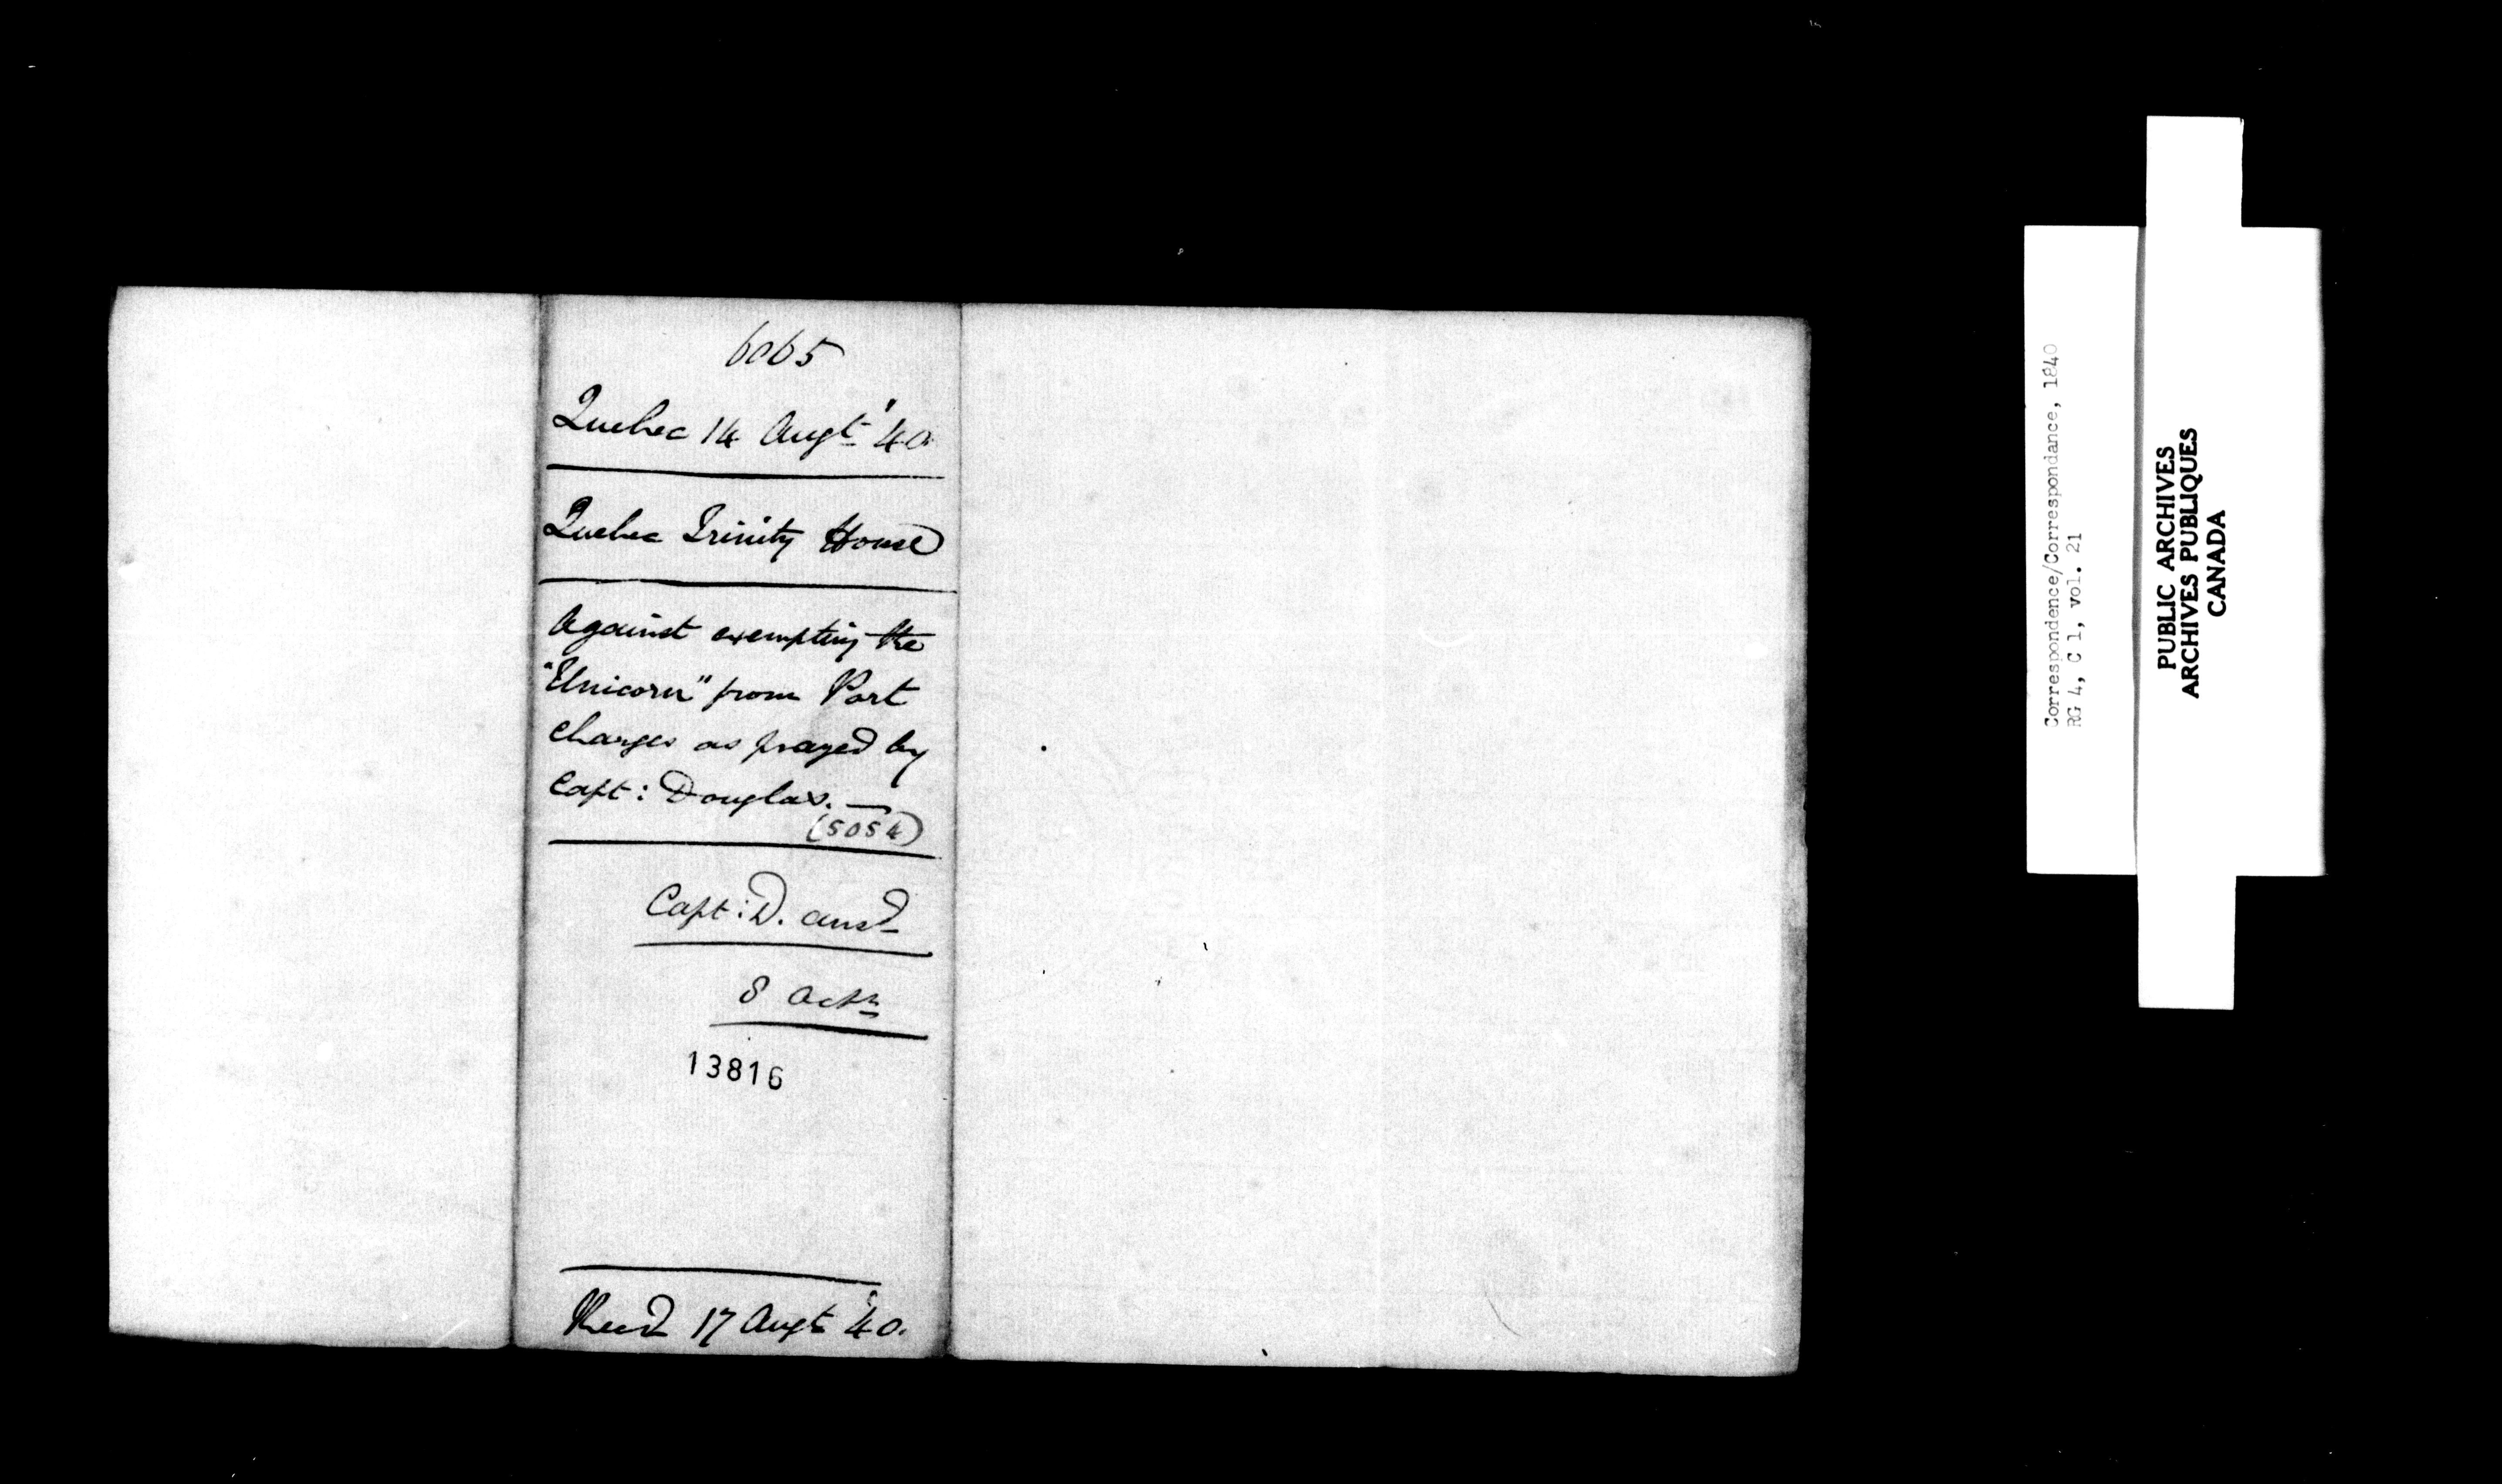 6065
Quebec 14 Augt '40.
Quebec Trinity House
Against exempting the
"Unicorn" from Port
Charges as prayed by
Capt: Douglas. —
(5054)
Capt: D. ansd
8 Octr
13816
Recd 17 Augt '40.
Correspondence/Correspondance, 1840
RG 4, C 1, vol. 21
PUBLIC ARCHIVES
ARCHIVES PUBLIQUES
CANADA